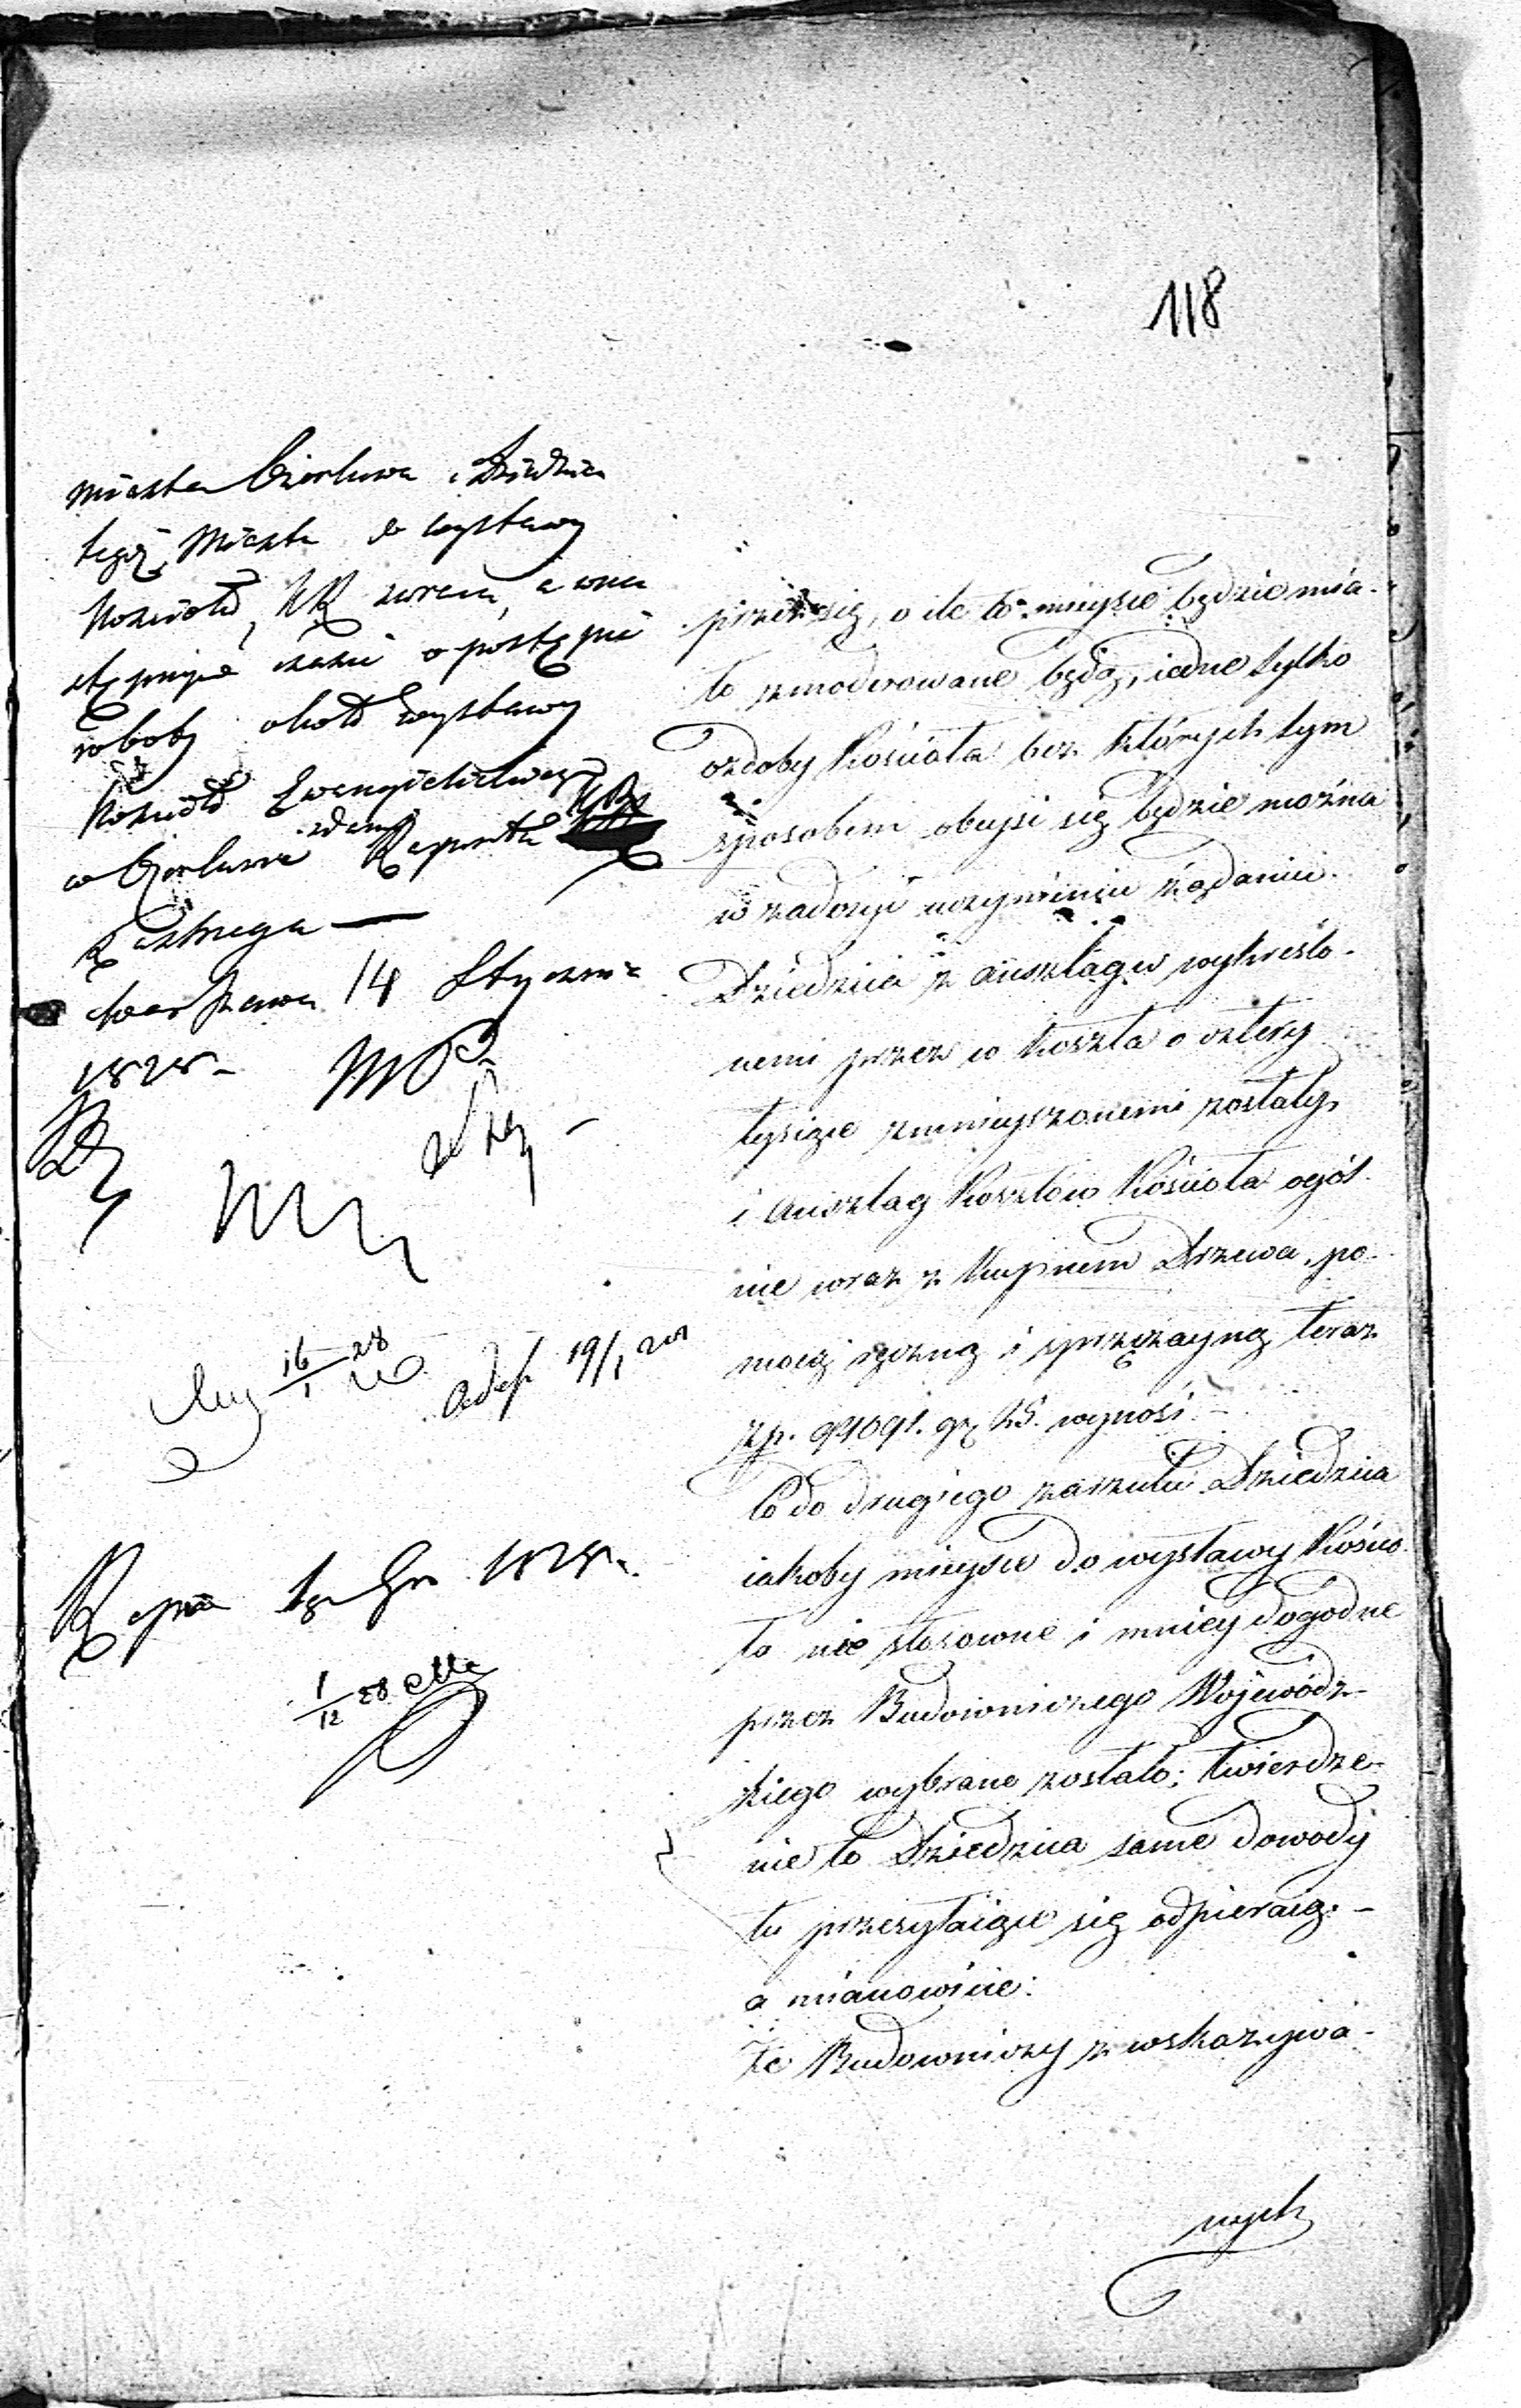 118
miasta Ozorkowa i Dziedzica
tegoż Miasta do wystawy
Kościoła, KR zwraca, a wna
stępnym czasie o postępie
roboty około wystawy
Kościoła Ewangelickiego
w Ozorkowie zdania Raportu KR
zastrzega —
Warszawa 14 Stycznia
1828 -
16/1 28
19/1 28
1828.
1/12 28
przeto się, o ile to mieysce będzie mia-
ło zmoderowane będą, iedne tylko
ozdoby Kościoła bez których tym
sposobem obeyść się będzie można
w zadosyć uczynieniu żądaniu
Dziedzica z anszlagu wykreślo-
nemi przez co koszta o cztery
tysiące zmnieyszonemi zostały,
i anszlag Kosztów Kościoła ogól-
nie wraz z kupnem Drzewa, po-
mocą ręczną i sprzężayną teraz
zp. 94091. gr 25. wynosi. -
Co do drugiego zarzutu Dziedzica
iakoby mieysce do wystawy Kościo-
ła nie stosowne i mniey dogodne
przez Budowniczego Wojewódz-
kiego wybrane zostało; twierdze-
nie to Dziedzica same dowody
tu przesyłaiące się odpieraią. -
a mianowicie:
Że Budowniczy z wskazywa-
nych